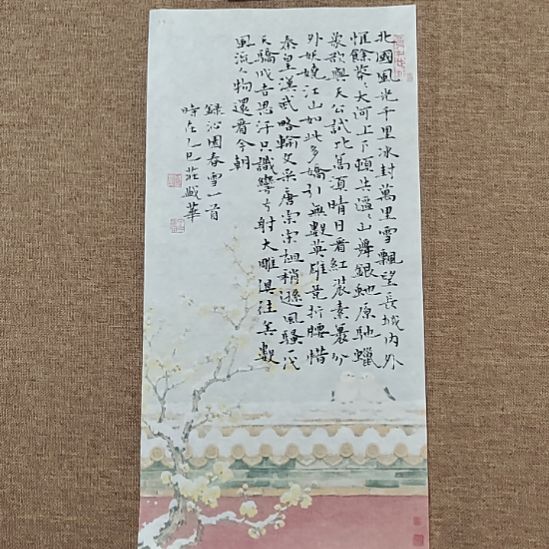 北國風光千里冰封萬里雪飄望長城內外
惟餘莽々大河上下頓失滔々山舞銀蛇原馳蠟
象欲與天公試比高須晴日看紅裝素裹分
外妖嬈江山如此多嬌引無數英雄競折腰惜
秦皇漢武略輸文采唐宗宋祖稍遜風騷一代
天驕成吉思汗只識彎弓射大雕俱往矣數
風流人物還看今朝
錄沁園春雪一首
時在乙巳莊華